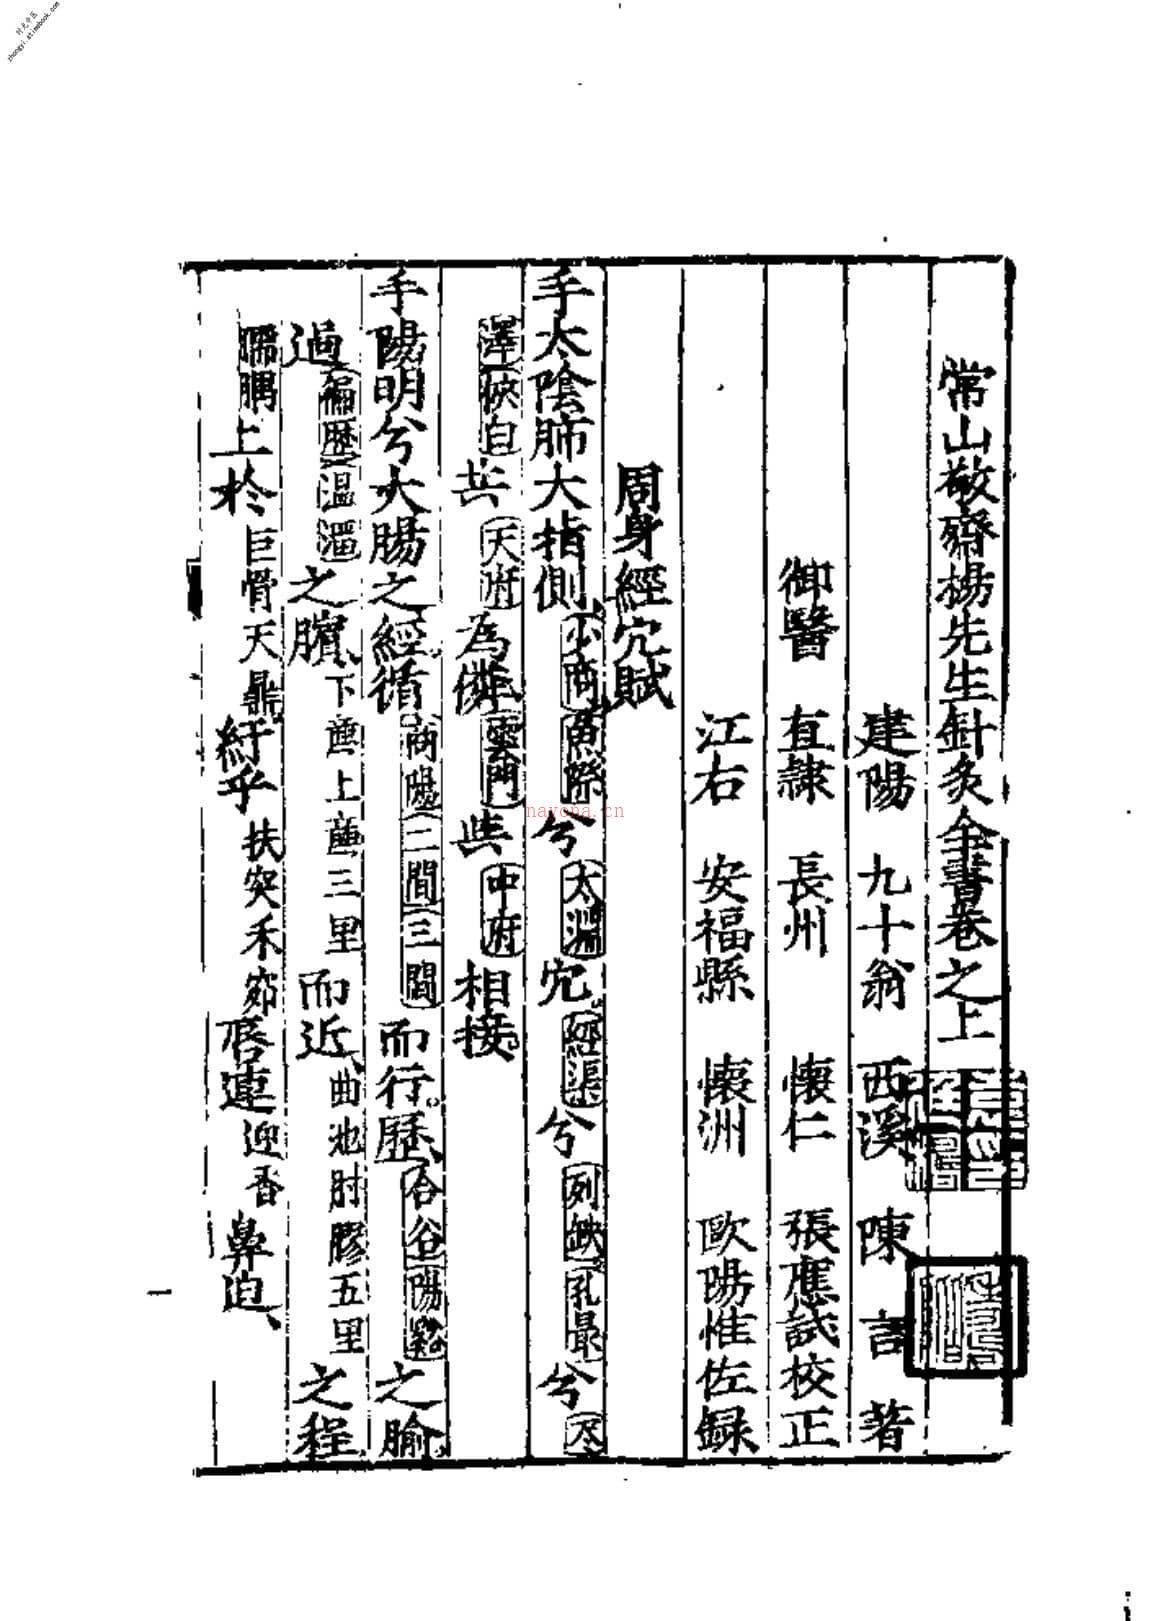 常山敬齋楊先生針灸全書卷之上
建陽 九十翁 西溪 陳 言 著
御醫 直隷 長州 懷仁 張應試校正
江右 安福縣 懷洲 歐陽惟佐録
周身經穴賦
手太陰肺大指側少商魚際兮太淵穴經渠兮列缺孔最兮尺
澤俠白共天府為隣雲門與中府相接
手陽明兮大腸之經循商陽二間三間而行歷合谷陽谿之腧
過偏歷溫溜之臏下廉上廉三里而近曲池肘髎五里之程
臑髃上於巨骨天鼎紆乎扶突禾窌唇連迎香鼻迫
一
时光中医
zhongyi.atimebook.com
nayona.cn